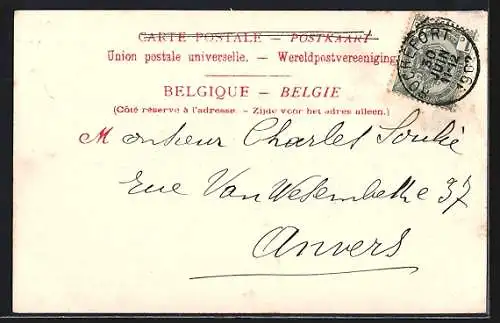 CARTE POSTALE — POSTKAART
Union postale universelle. — Wereldpostvereeniging
BELGIQUE — BELGIE
(Côté réservé à l'adresse. — Zijde voor het adres alleen.)
ROCHEFORT
30
JUIN
11-12
1902
Monsieur Charles Soulié
Rue Van Wesembeke 37
Anvers